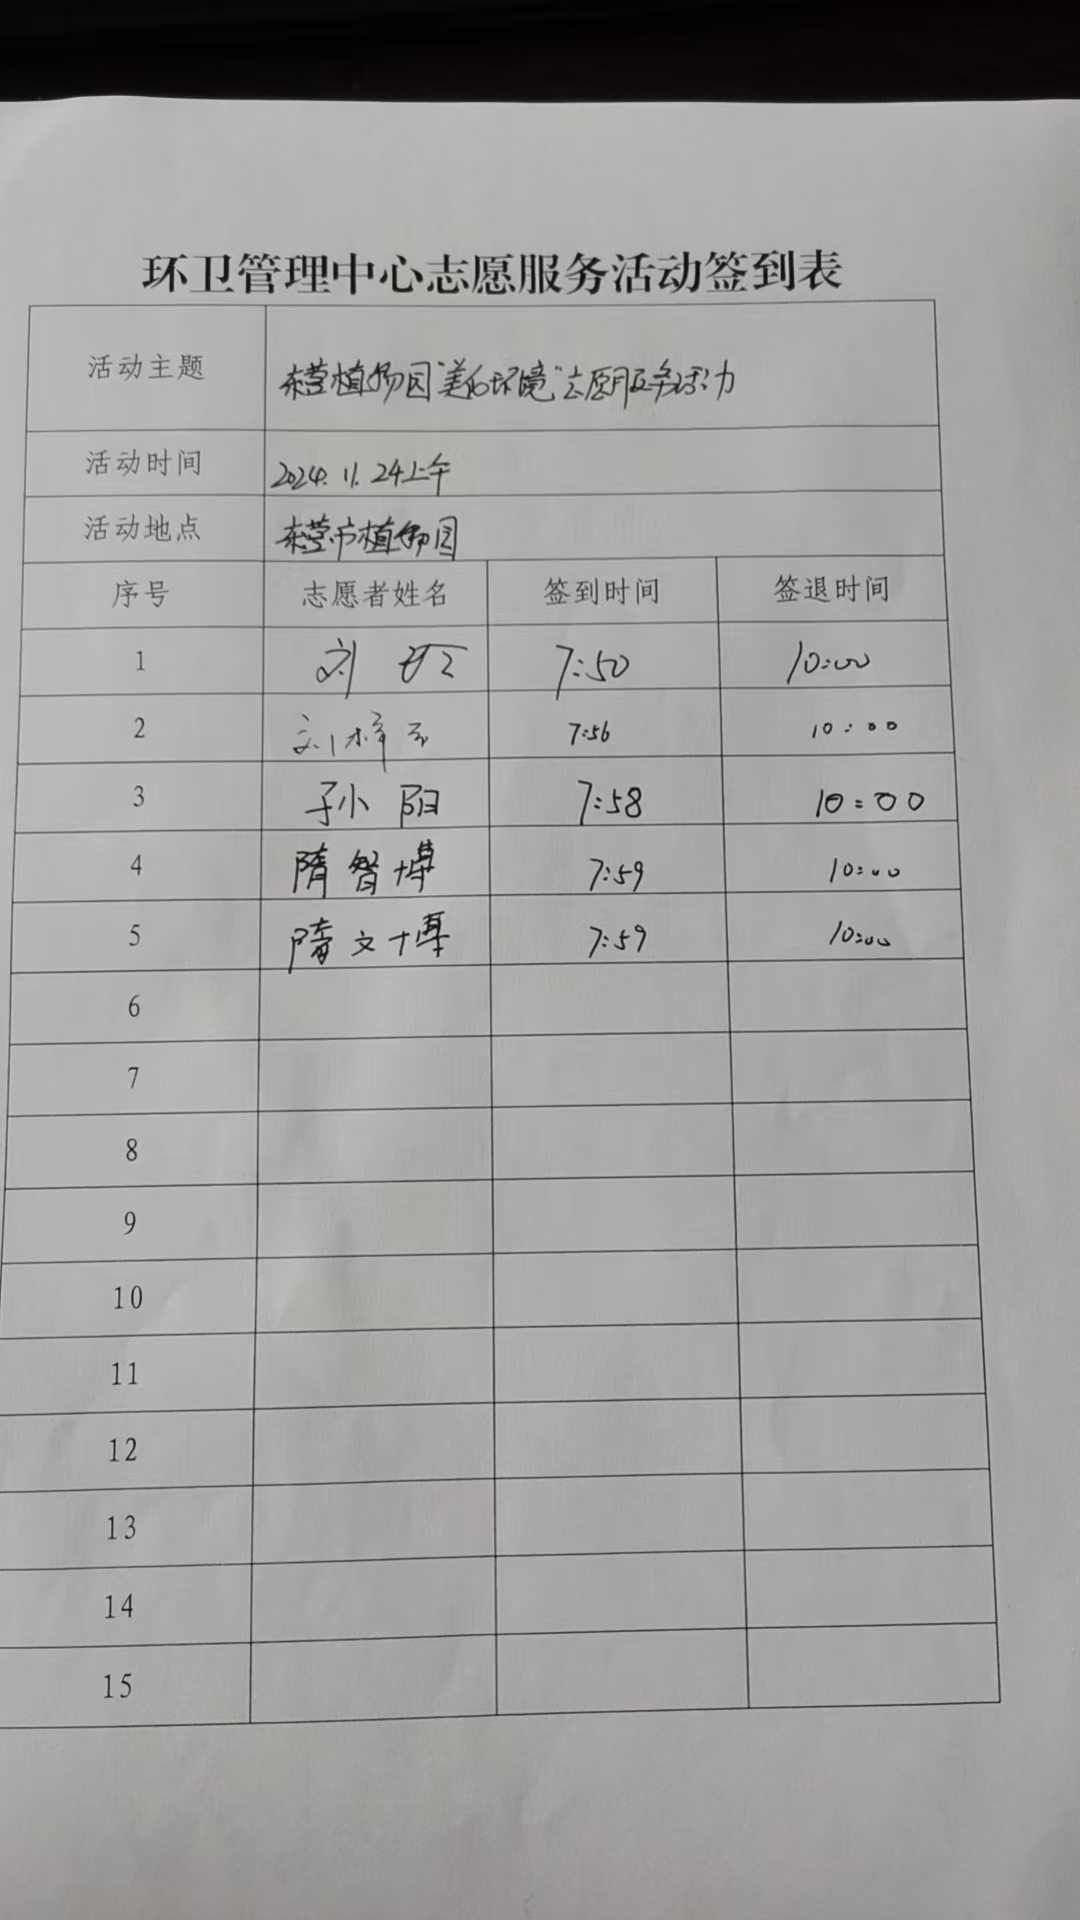 环卫管理中心志愿服务活动签到表
活动主题 东营植物园“美化环境”志愿服务活动
活动时间 2024.11.24上午
活动地点 东营市植物园
序号 志愿者姓名 签到时间 签退时间
1 刘 7:50 10:00
2 刘梓 7:56 10:00
3 孙小阳 7:58 10:00
4 隋智博 7:59 10:00
5 隋文博 7:59 10:00
6
7
8
9
10
11
12
13
14
15